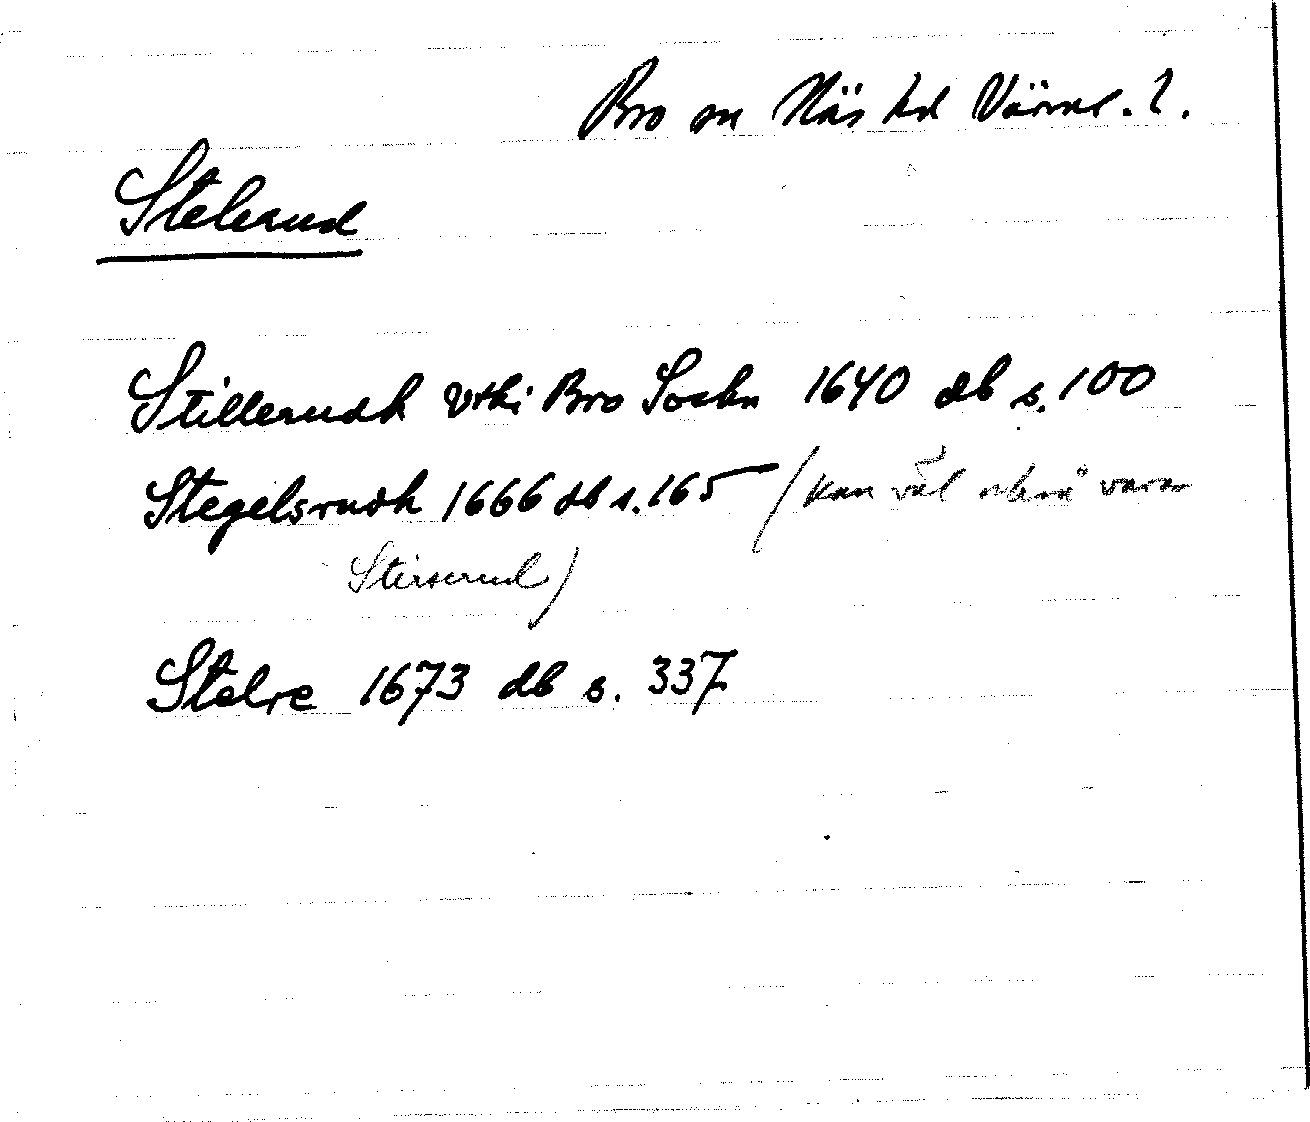 Bro sn Näs hd Värml. l.
Stelerud
Stillerudh vthi Bro Sochn 1640 db s. 100
Stegelsrudh 1666 db s. 165 (kan väl också vara
Stirserud)
Stelre 1673 db s. 337